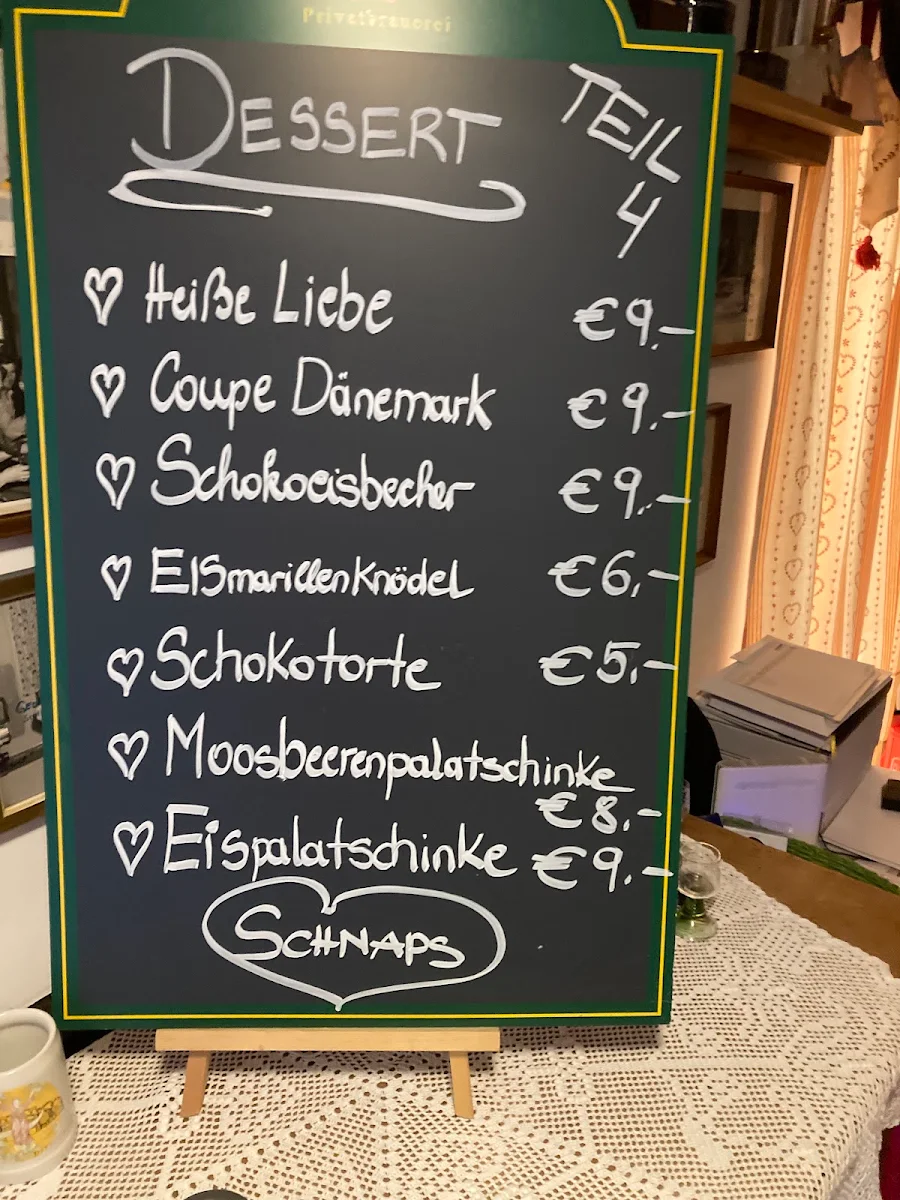 Privatbrauerei
DESSERT
TEIL
4
Heiße Liebe €9,-
Coupe Dänemark €9.-
Schokoeisbecher €9,-
EISmarillenKnödel €6,-
Schokotorte €5,-
Moosbeerenpalatschinke
€8.-
Eispalatschinke €9.-
SCHNAPS